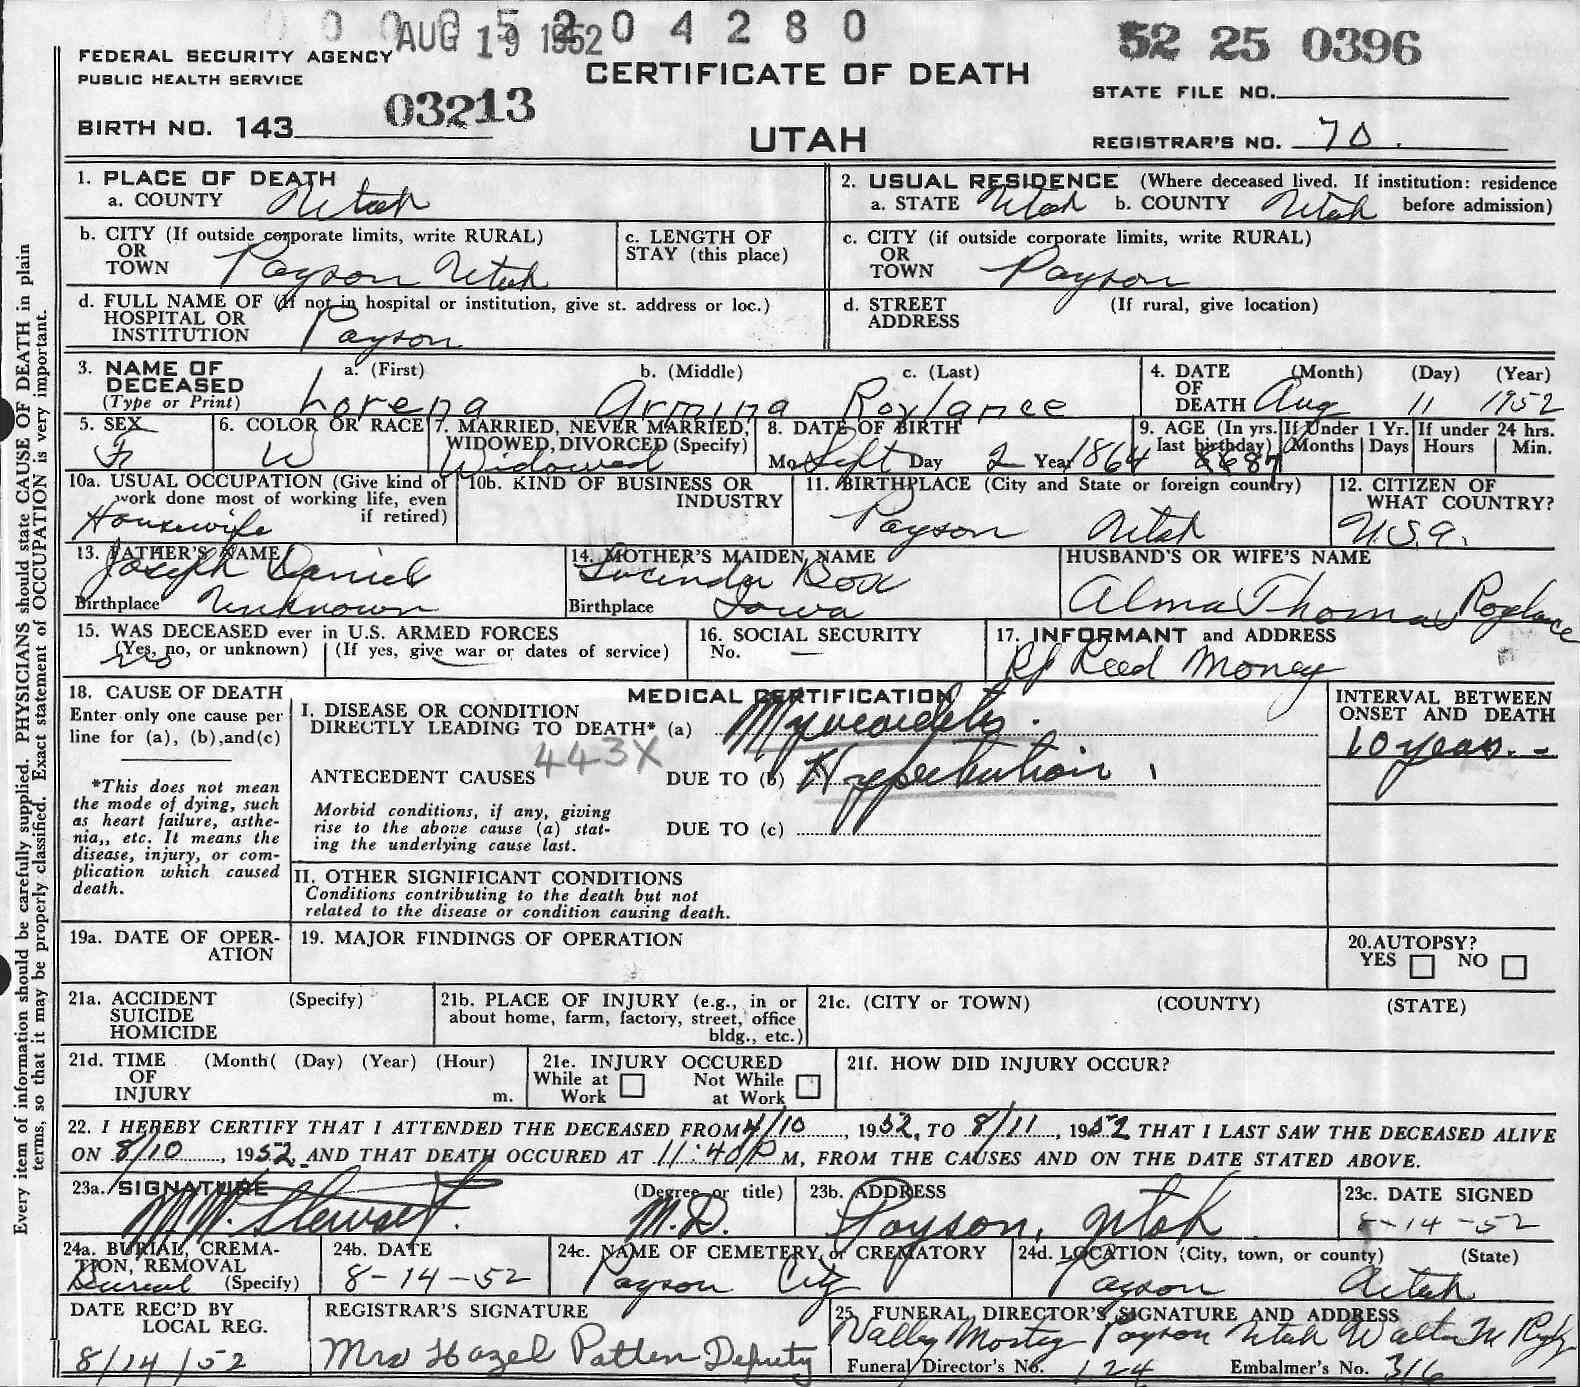 AUG 19 1952 0 4 2 8 0
52 25 0396
FEDERAL SECURITY AGENCY
PUBLIC HEALTH SERVICE
CERTIFICATE OF DEATH
STATE FILE NO.
BIRTH NO. 143 03213
UTAH
REGISTRAR'S NO. 70.
Every item of information should be carefully supplied. PHYSICIANS should state CAUSE OF DEATH in plain
terms, so that it may be properly classified. Exact statement of OCCUPATION is very important.
1. PLACE OF DEATH
a. COUNTY Utah
2. USUAL RESIDENCE (Where deceased lived. If institution: residence
a. STATE Utah b. COUNTY Utah before admission)
b. CITY (If outside corporate limits, write RURAL)
OR
TOWN Payson Utah
c. LENGTH OF
STAY (this place)
c. CITY (if outside corporate limits, write RURAL)
OR
TOWN Payson
d. FULL NAME OF (If not in hospital or institution, give st. address or loc.)
HOSPITAL OR
INSTITUTION Payson
d. STREET (If rural, give location)
ADDRESS
3. NAME OF DECEASED (Type or Print)
a. (First) b. (Middle) c. (Last)
Lorena Armina Roylance
4. DATE OF DEATH (Month) (Day) (Year)
Aug 11 1952
5. SEX
F
6. COLOR OR RACE
W
7. MARRIED, NEVER MARRIED,
WIDOWED, DIVORCED (Specify)
Widowed
8. DATE OF BIRTH
Mo Sept Day 2 Year 1864
9. AGE (In yrs. last birthday) 87
If Under 1 Yr. Months Days
If under 24 hrs. Hours Min.
10a. USUAL OCCUPATION (Give kind of
work done most of working life, even
if retired)
Housewife
10b. KIND OF BUSINESS OR
INDUSTRY
11. BIRTHPLACE (City and State or foreign country)
Payson Utah
12. CITIZEN OF
WHAT COUNTRY?
U.S.A.
13. FATHER'S NAME
Joseph Daniel
Birthplace Unknown
14. MOTHER'S MAIDEN NAME
Lucinda Box
Birthplace Iowa
HUSBAND'S OR WIFE'S NAME
Alma Thomas Roylance
15. WAS DECEASED ever in U.S. ARMED FORCES
(Yes, no, or unknown) (If yes, give war or dates of service)
no
16. SOCIAL SECURITY
No. —
17. INFORMANT and ADDRESS
Reed Money
18. CAUSE OF DEATH
Enter only one cause per
line for (a), (b), and (c)
*This does not mean
the mode of dying, such
as heart failure, asthe-
nia,, etc. It means the
disease, injury, or com-
plication which caused
death.
MEDICAL CERTIFICATION
I. DISEASE OR CONDITION
DIRECTLY LEADING TO DEATH* (a) Myocarditis.
443X
ANTECEDENT CAUSES DUE TO (b) Hypertension
Morbid conditions, if any, giving
rise to the above cause (a) stat-
ing the underlying cause last.
DUE TO (c)
INTERVAL BETWEEN
ONSET AND DEATH
10 years. -
II. OTHER SIGNIFICANT CONDITIONS
Conditions contributing to the death but not
related to the disease or condition causing death.
19a. DATE OF OPER-
ATION
19. MAJOR FINDINGS OF OPERATION
20. AUTOPSY?
YES NO
21a. ACCIDENT (Specify)
SUICIDE
HOMICIDE
21b. PLACE OF INJURY (e.g., in or
about home, farm, factory, street, office
bldg., etc.)
21c. (CITY or TOWN) (COUNTY) (STATE)
21d. TIME (Month( (Day) (Year) (Hour)
OF
INJURY m.
21e. INJURY OCCURED
While at Work Not While at Work
21f. HOW DID INJURY OCCUR?
22. I HEREBY CERTIFY THAT I ATTENDED THE DECEASED FROM 4/10, 1952, TO 8/11, 1952 THAT I LAST SAW THE DECEASED ALIVE
ON 8/10, 1952, AND THAT DEATH OCCURED AT 11:40 P M, FROM THE CAUSES AND ON THE DATE STATED ABOVE.
23a. SIGNATURE (Degree or title)
Stewart. M.D.
23b. ADDRESS
Payson, Utah
23c. DATE SIGNED
8-14-52
24a. BURIAL, CREMA-
TION, REMOVAL
Burial (Specify)
24b. DATE
8-14-52
24c. NAME OF CEMETERY or CREMATORY
Payson City
24d. LOCATION (City, town, or county) (State)
Payson Utah
DATE REC'D BY
LOCAL REG.
8/14/52
REGISTRAR'S SIGNATURE
Mrs Hazel Patten Deputy
25. FUNERAL DIRECTOR'S SIGNATURE AND ADDRESS
Valley Payson Utah Walter M
Funeral Director's No. 124 Embalmer's No. 316